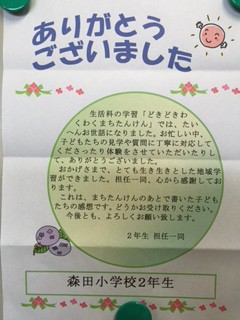 ありがとう
ございました
生活科の学習「どきどきわ
くわくまちたんけん」では、たい
へんお世話になりました。お忙しい中、
子どもたちの見学や質問に丁寧に対応して
くださったり体験をさせていただいたりし
て、ありがとうございました。
おかげさまで、とても生き生きとした地域学
習ができました。担任一同、心から感謝してお
ります。
これは、まちたんけんのあとで書いた子どもた
ちの感想です。どうかお受け取りください。
今後とも、よろしくお願い致します。
2年生 担任一同
森田小学校2年生